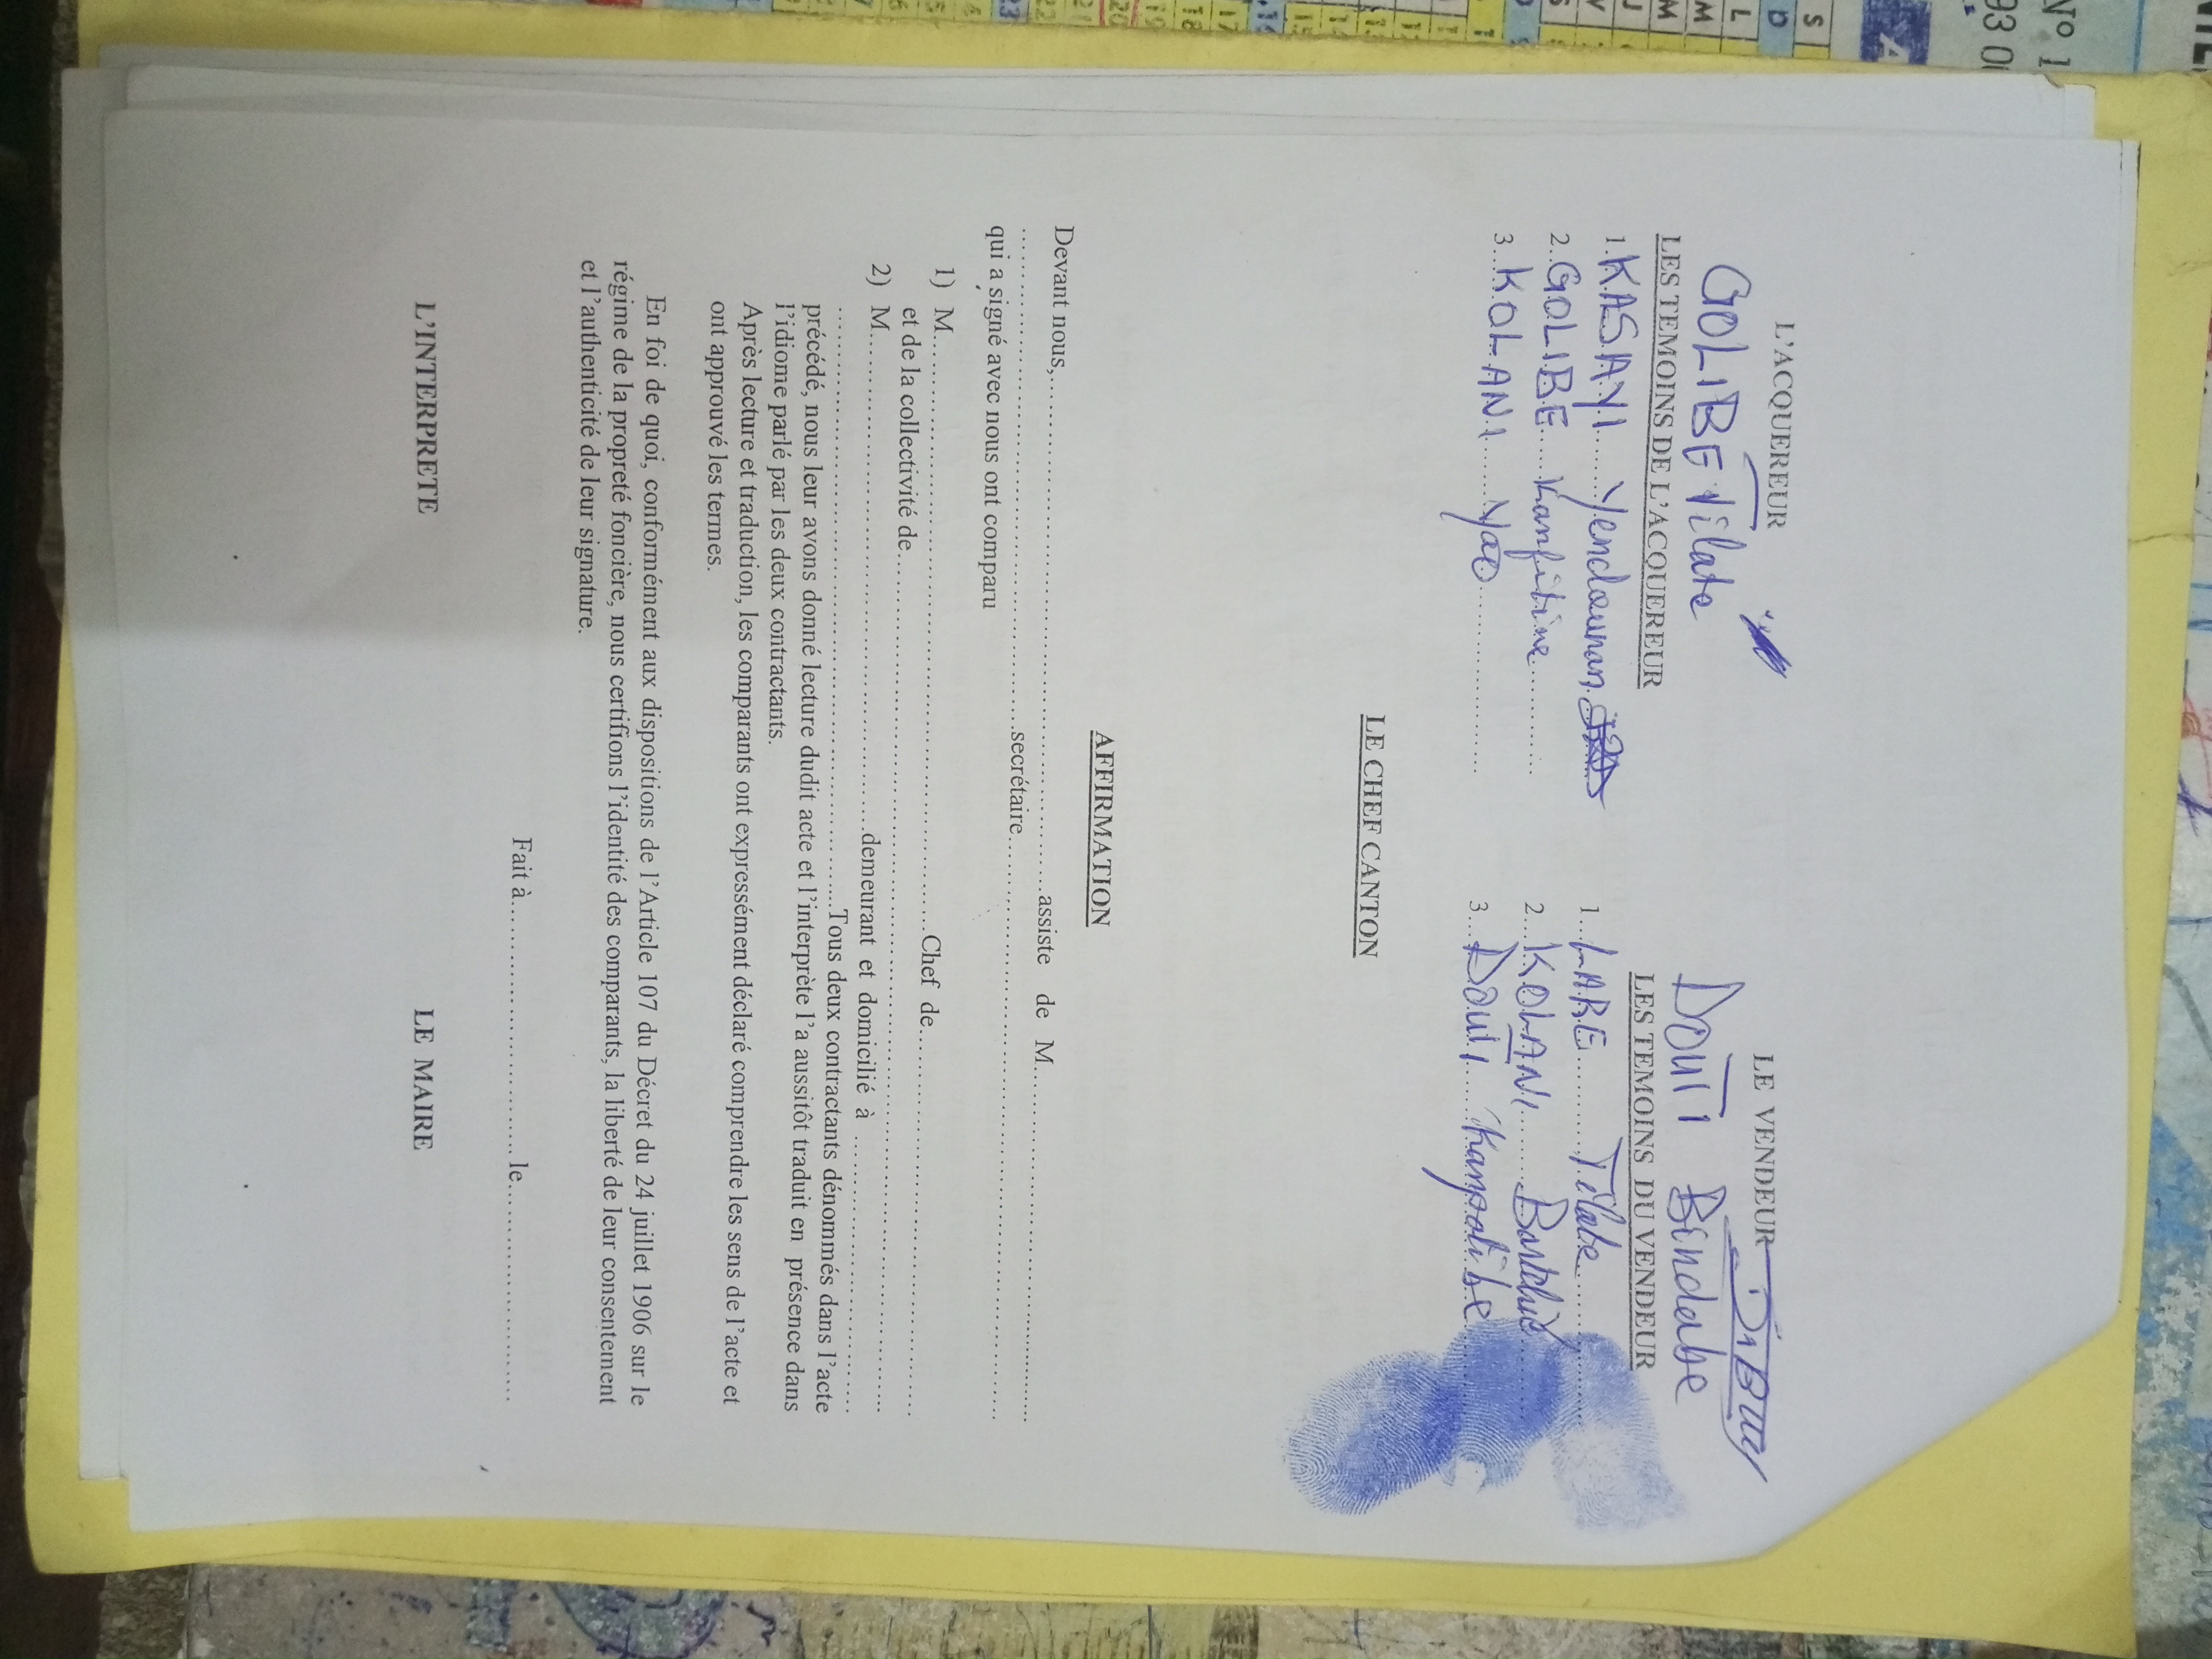 L'ACQUEREUR
LE VENDEUR
GOLIBE Tilate
Douti Bindabe
LES TEMOINS DE L'ACQUEREUR
LES TEMOINS DU VENDEUR
1.KASAYI......Yendouman
1....LARE..........Tilate..........
2...GOLIBE....Kanfitine..........
2....KOLANI.......
3....KOLANI......Yao....................
3....Douti......Kampatibe
LE CHEF CANTON
AFFIRMATION
Devant nous,..................................................assiste de M...............................................
..................................................secrétaire.................................................................
qui a signé avec nous ont comparu
1) M..................................................................Chef de..................................................
et de la collectivité de.................................................................................................
2) M..................................................demeurant et domicilié à ..............................
..................................................Tous deux contractants dénommés dans l'acte
précédé, nous leur avons donné lecture dudit acte et l'interprète l'a aussitôt traduit en présence dans
l'idiome parlé par les deux contractants.
Après lecture et traduction, les comparants ont expressément déclaré comprendre les sens de l'acte et
ont approuvé les termes.
En foi de quoi, conformément aux dispositions de l'Article 107 du Décret du 24 juillet 1906 sur le
régime de la propreté foncière, nous certifions l'identité des comparants, la liberté de leur consentement
et l'authenticité de leur signature.
Fait à.................................... le..............................
L'INTERPRETE
LE MAIRE